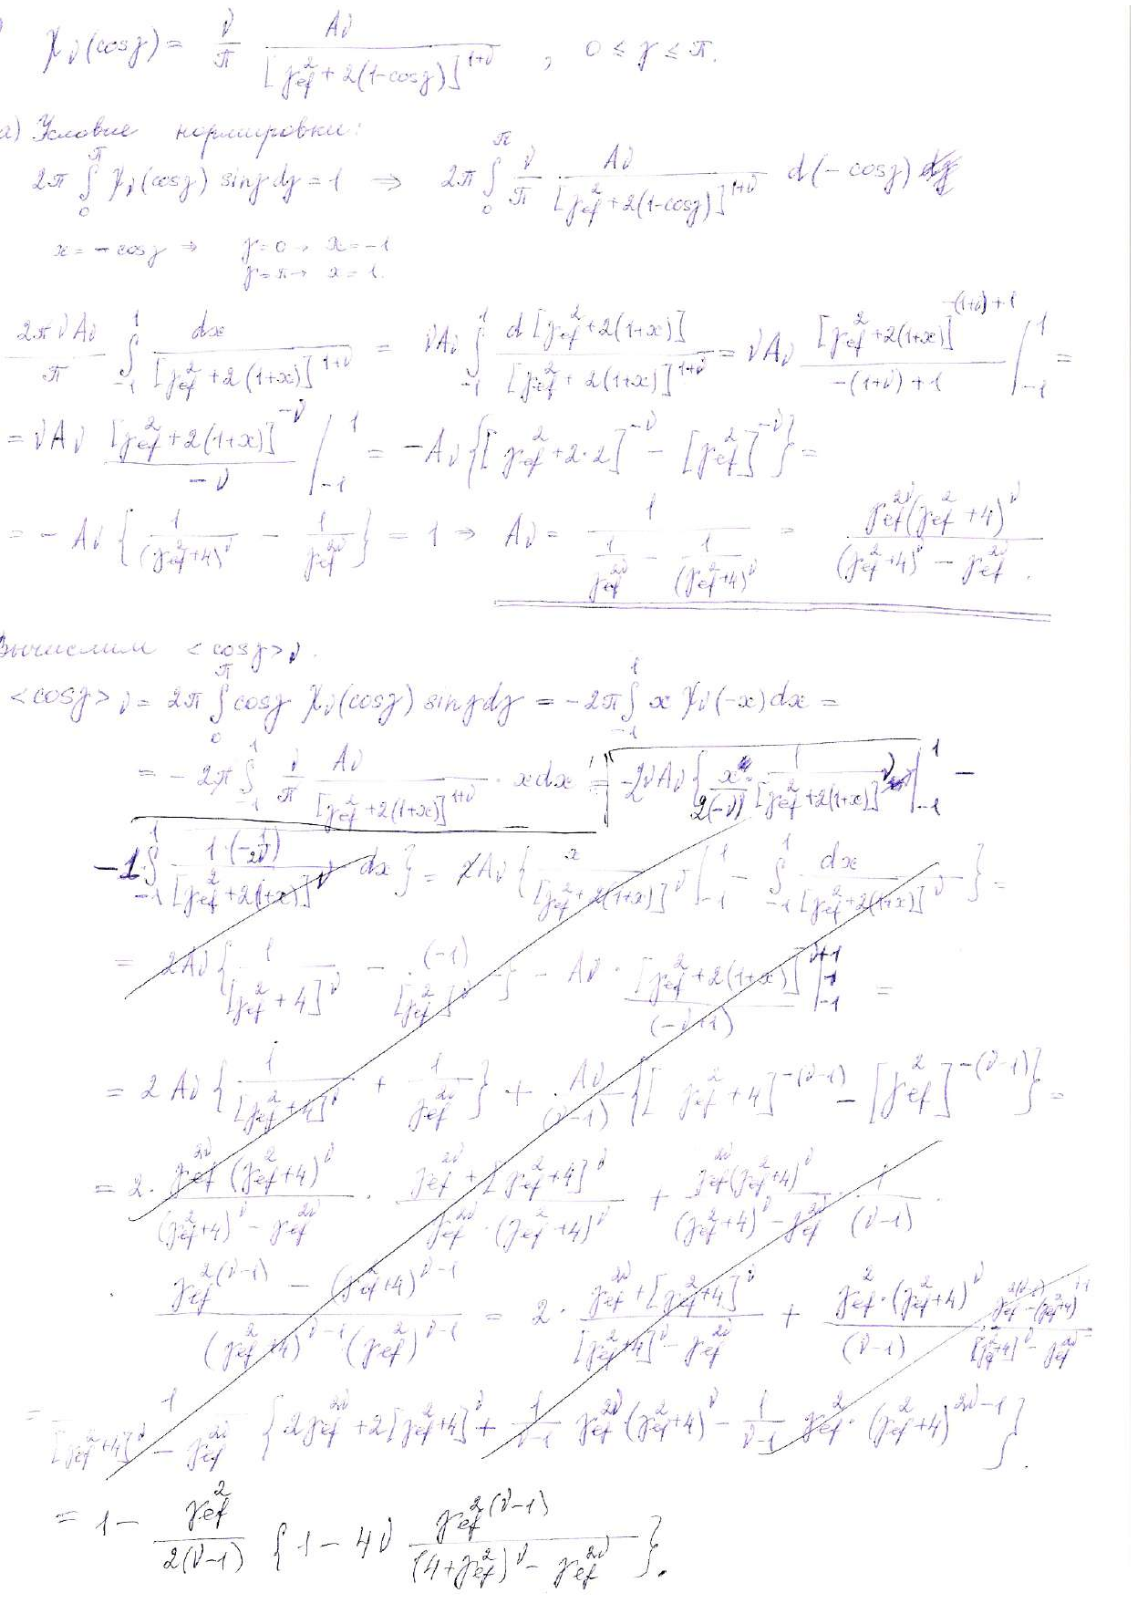 χ_ν(cosγ) = ν/π · A_ν/[γ_ef² + 2(1-cosγ)]^{1+ν}, 0 ≤ γ ≤ π.
а) Условие нормировки:
2π ∫_0^π χ_ν(cosγ) sinγdγ = 1 ⇒ 2π ∫_0^π ν/π · A_ν/[γ_ef² + 2(1-cosγ)]^{1+ν} d(-cosγ)
x = -cosγ ⇒ γ=0 → x=-1
γ=π → x=1.
2πνA_ν/π ∫_{-1}^1 dx/[γ_ef² + 2(1+x)]^{1+ν} = νA_ν ∫_{-1}^1 d[γ_ef² + 2(1+x)]/[γ_ef² + 2(1+x)]^{1+ν} = νA_ν [γ_ef² + 2(1+x)]^{-(1+ν)+1}/(-(1+ν)+1) |_{-1}^1 =
= νA_ν [γ_ef² + 2(1+x)]^{-ν}/(-ν) |_{-1}^1 = -A_ν{[γ_ef² + 2·2]^{-ν} - [γ_ef²]^{-ν}} =
= -A_ν{1/(γ_ef²+4)^ν - 1/γ_ef^{2ν}} = 1 ⇒ A_ν = 1/(1/γ_ef^{2ν} - 1/(γ_ef²+4)^ν) = γ_ef^{2ν}(γ_ef²+4)^ν/((γ_ef²+4)^ν - γ_ef^{2ν}).
Вычислим <cosγ>_ν.
<cosγ>_ν = 2π ∫_0^π cosγ χ_ν(cosγ) sinγdγ = -2π ∫_{-1}^1 x χ_ν(-x)dx =
= -2π ∫_{-1}^1 ν/π · A_ν/[γ_ef² + 2(1+x)]^{1+ν} · xdx = -2νA_ν{x/(2(-ν)) · 1/[γ_ef² + 2(1+x)]^ν |_{-1}^1 -
-1·∫_{-1}^1 1·(-1/2ν)/[γ_ef² + 2(1+x)]^ν dx} = A_ν{x/[γ_ef² + 2(1+x)]^ν |_{-1}^1 - ∫_{-1}^1 dx/[γ_ef² + 2(1+x)]^ν} =
= 2A_ν{1/[γ_ef² + 4]^ν - (-1)/[γ_ef²]^ν} - A_ν · [γ_ef² + 2(1+x)]^{-ν+1}/(-ν+1) |_{-1}^1 =
= 2A_ν{1/[γ_ef²+4]^ν + 1/γ_ef^{2ν}} + A_ν/(ν-1) {[γ_ef²+4]^{-(ν-1)} - [γ_ef²]^{-(ν-1)}} =
= 2 · γ_ef^{2ν}(γ_ef²+4)^ν/((γ_ef²+4)^ν - γ_ef^{2ν}) · (γ_ef^{2ν} + [γ_ef²+4]^ν)/(γ_ef^{2ν}·(γ_ef²+4)^ν) + γ_ef^{2ν}(γ_ef²+4)^ν/((γ_ef²+4)^ν - γ_ef^{2ν}) · 1/(ν-1) ·
· (γ_ef^{2(ν-1)} - (γ_ef²+4)^{ν-1})/((γ_ef²+4)^{ν-1}(γ_ef²)^{ν-1}) = 2 · (γ_ef^{2ν} + [γ_ef²+4]^ν)/([γ_ef²+4]^ν - γ_ef^{2ν}) + γ_ef²·(γ_ef²+4)^ν/(ν-1)
= 1/([γ_ef²+4]^ν - γ_ef^{2ν}) {2γ_ef^{2ν} + 2[γ_ef²+4]^ν + 1/(ν-1) γ_ef^{2ν}(γ_ef²+4)^ν - 1/(ν-1) γ_ef²·(γ_ef²+4)^{2ν-1}}.
= 1 - γ_ef²/(2(ν-1)) {1 - 4ν γ_ef^{2(ν-1)}/((4+γ_ef²)^ν - γ_ef^{2ν})}.